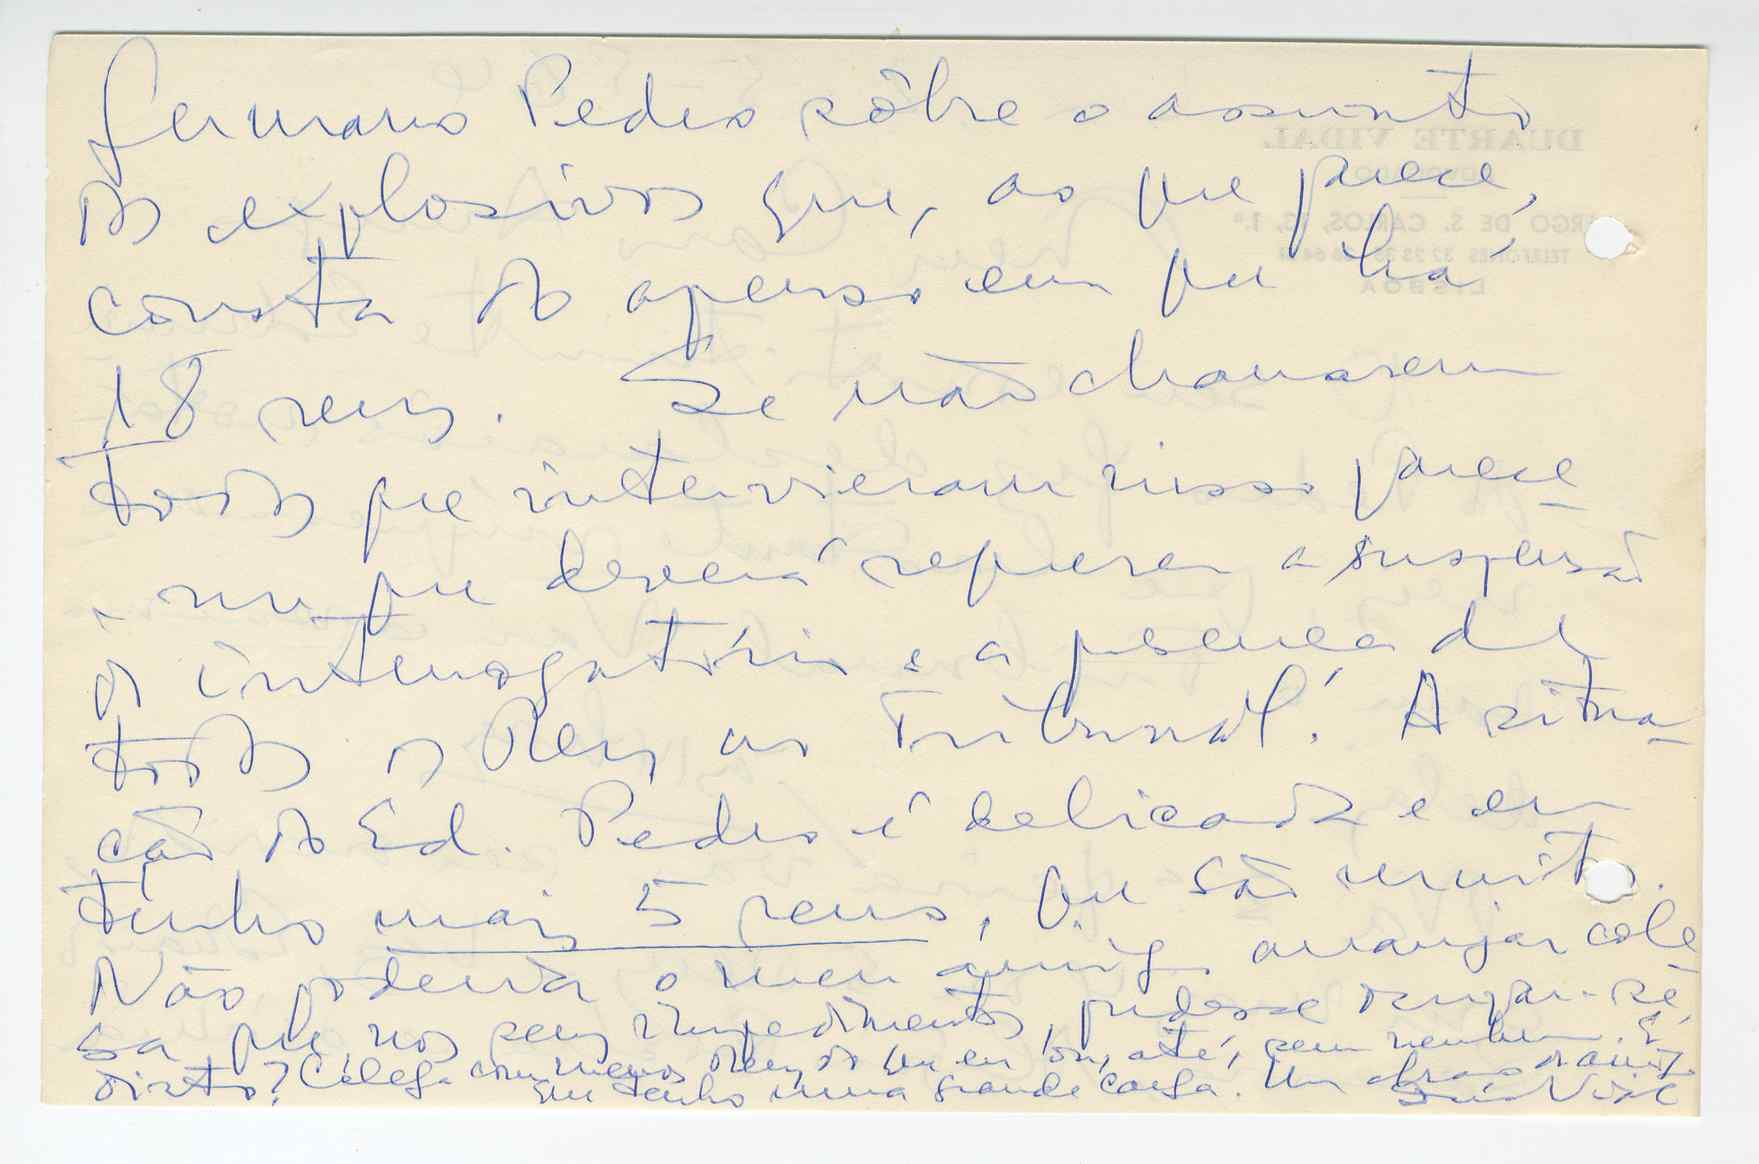 Germano Pedro sôbre o assunto
dos explosivos que, ao que parece,
consta do apenso em que há
18 reus. Se não chamarem
todos que intervieram nisso parece-
-me que deverá requerer a suspensão
do interrogatório e a presença de
todos os Reus ao Tribunal. A situa-
ção do Ed. Pedro é delicada e eu
tenho mais 5 reus, que são muitos.
Não poderia o meu amigo arranjar cole-
ga que, nos seus impedimentos, pudesse ocupar-se
disto? Colega com menos Reus do que eu ou, até, sem nenhum. É
que tenho uma grande carga. Um abraço amigo
DUARTE VIDAL
ADVOGADO
LARGO DE S. CARLOS, 1.º
TELEFONES
LISBOA